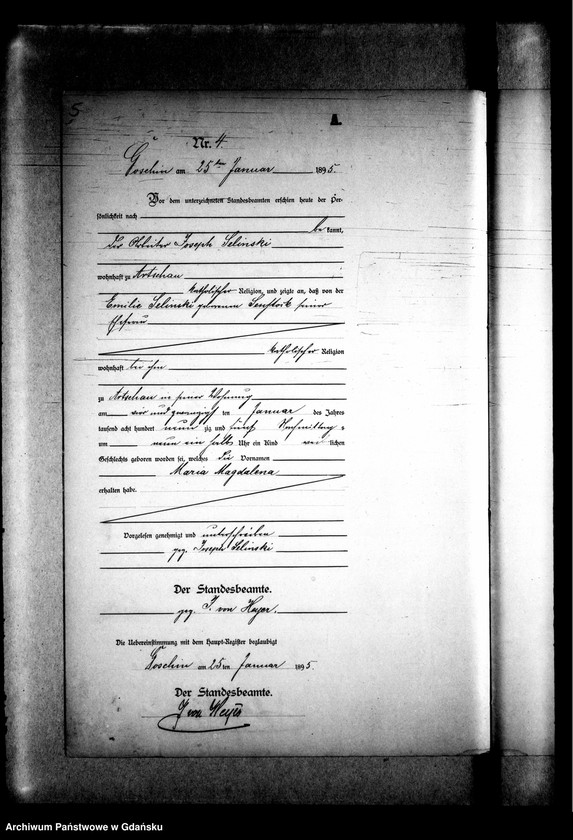 5
A.
Nr. 4.
Goschin am 25ten Januar 1895.
Vor dem unterzeichneten Standesbeamten erschien heute der Per-
sönlichkeit nach
be kannt,
der Arbeiter Joseph Selinski
wohnhaft zu Artschau
katholischer Religion, und zeigte an, daß von der
Emilie Selinski geborenen seiner
Ehefrau
katholischer Religion
wohnhaft bei ihm
zu Artschau in seiner Wohnung
am vier und zwanzigsten Januar des Jahres
tausend acht hundert neun zig und fünf Nachmittags
um neun ein halb Uhr ein Kind weib lichen
Geschlechts geboren worden sei, welches die Vornamen
Maria Magdalena
erhalten habe.
Vorgelesen genehmigt und unterschrieben
gez. Joseph Selinski
Der Standesbeamte.
gez. J. von Heyer.
Die Uebereinstimmung mit dem Haupt-Register beglaubigt
Goschin am 25 ten Januar 1895.
Der Standesbeamte.
J von Heyer
Archiwum Państwowe w Gdańsku